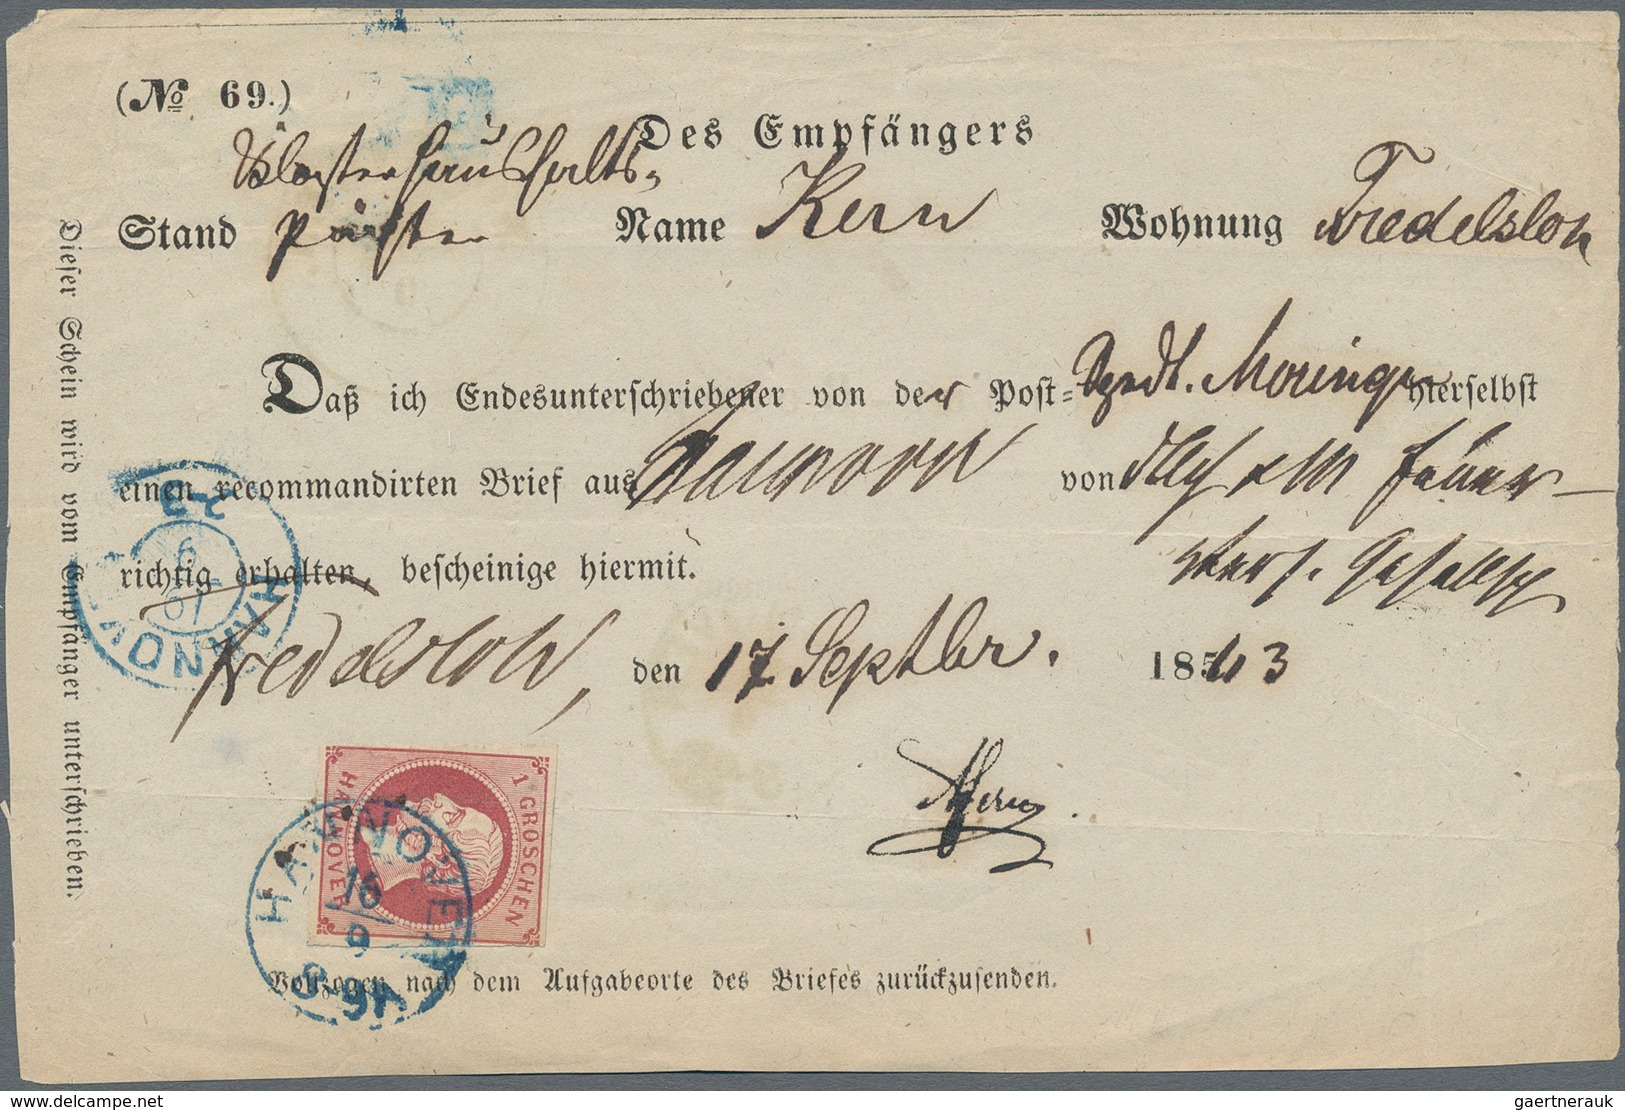 (№ 69.)
Des Empfängers
Klosterhaushalts-
Stand Pächter Name Kern Wohnung Fredelsloh
Daß ich Endesunterschriebener von der Post=Spedt. Moringen hierselbst
einen recommandirten Brief aus Hannover von
richtig erhalten, bescheinige hiermit.
Fredelsloh, den 17 Septbr. 1863
Kern
HANNOVER
1 GROSCHEN
HANNOVER
16
9
8-9A
Vollzogen nach dem Aufgabeorte des Briefes zurückzusenden.
Dieser Schein wird vom Empfänger unterschrieben.
www.delcampe.net
gaertnerauk